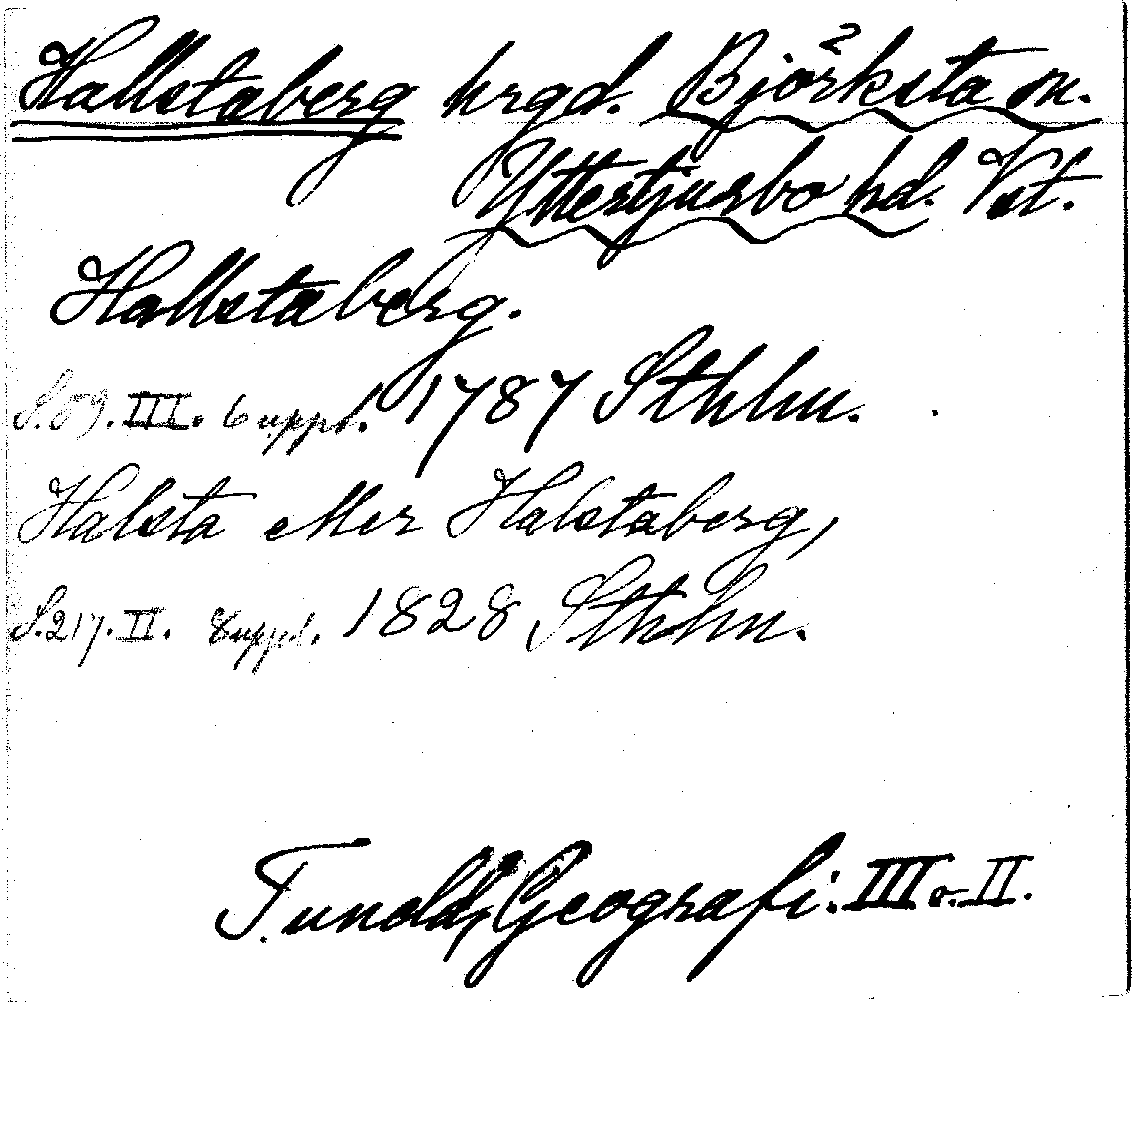 Hallstaberg hrgd. Björksta sn.
Yttertjurbo hd. Vst.
Hallstaberg.
S. 59. III. 6 uppl. 1787 Sthlm.
Halsta eller Halstaberg,
S. 217. II. 8 uppl. 1828 Sthlm.
Tunold, Geografi. III o. II.